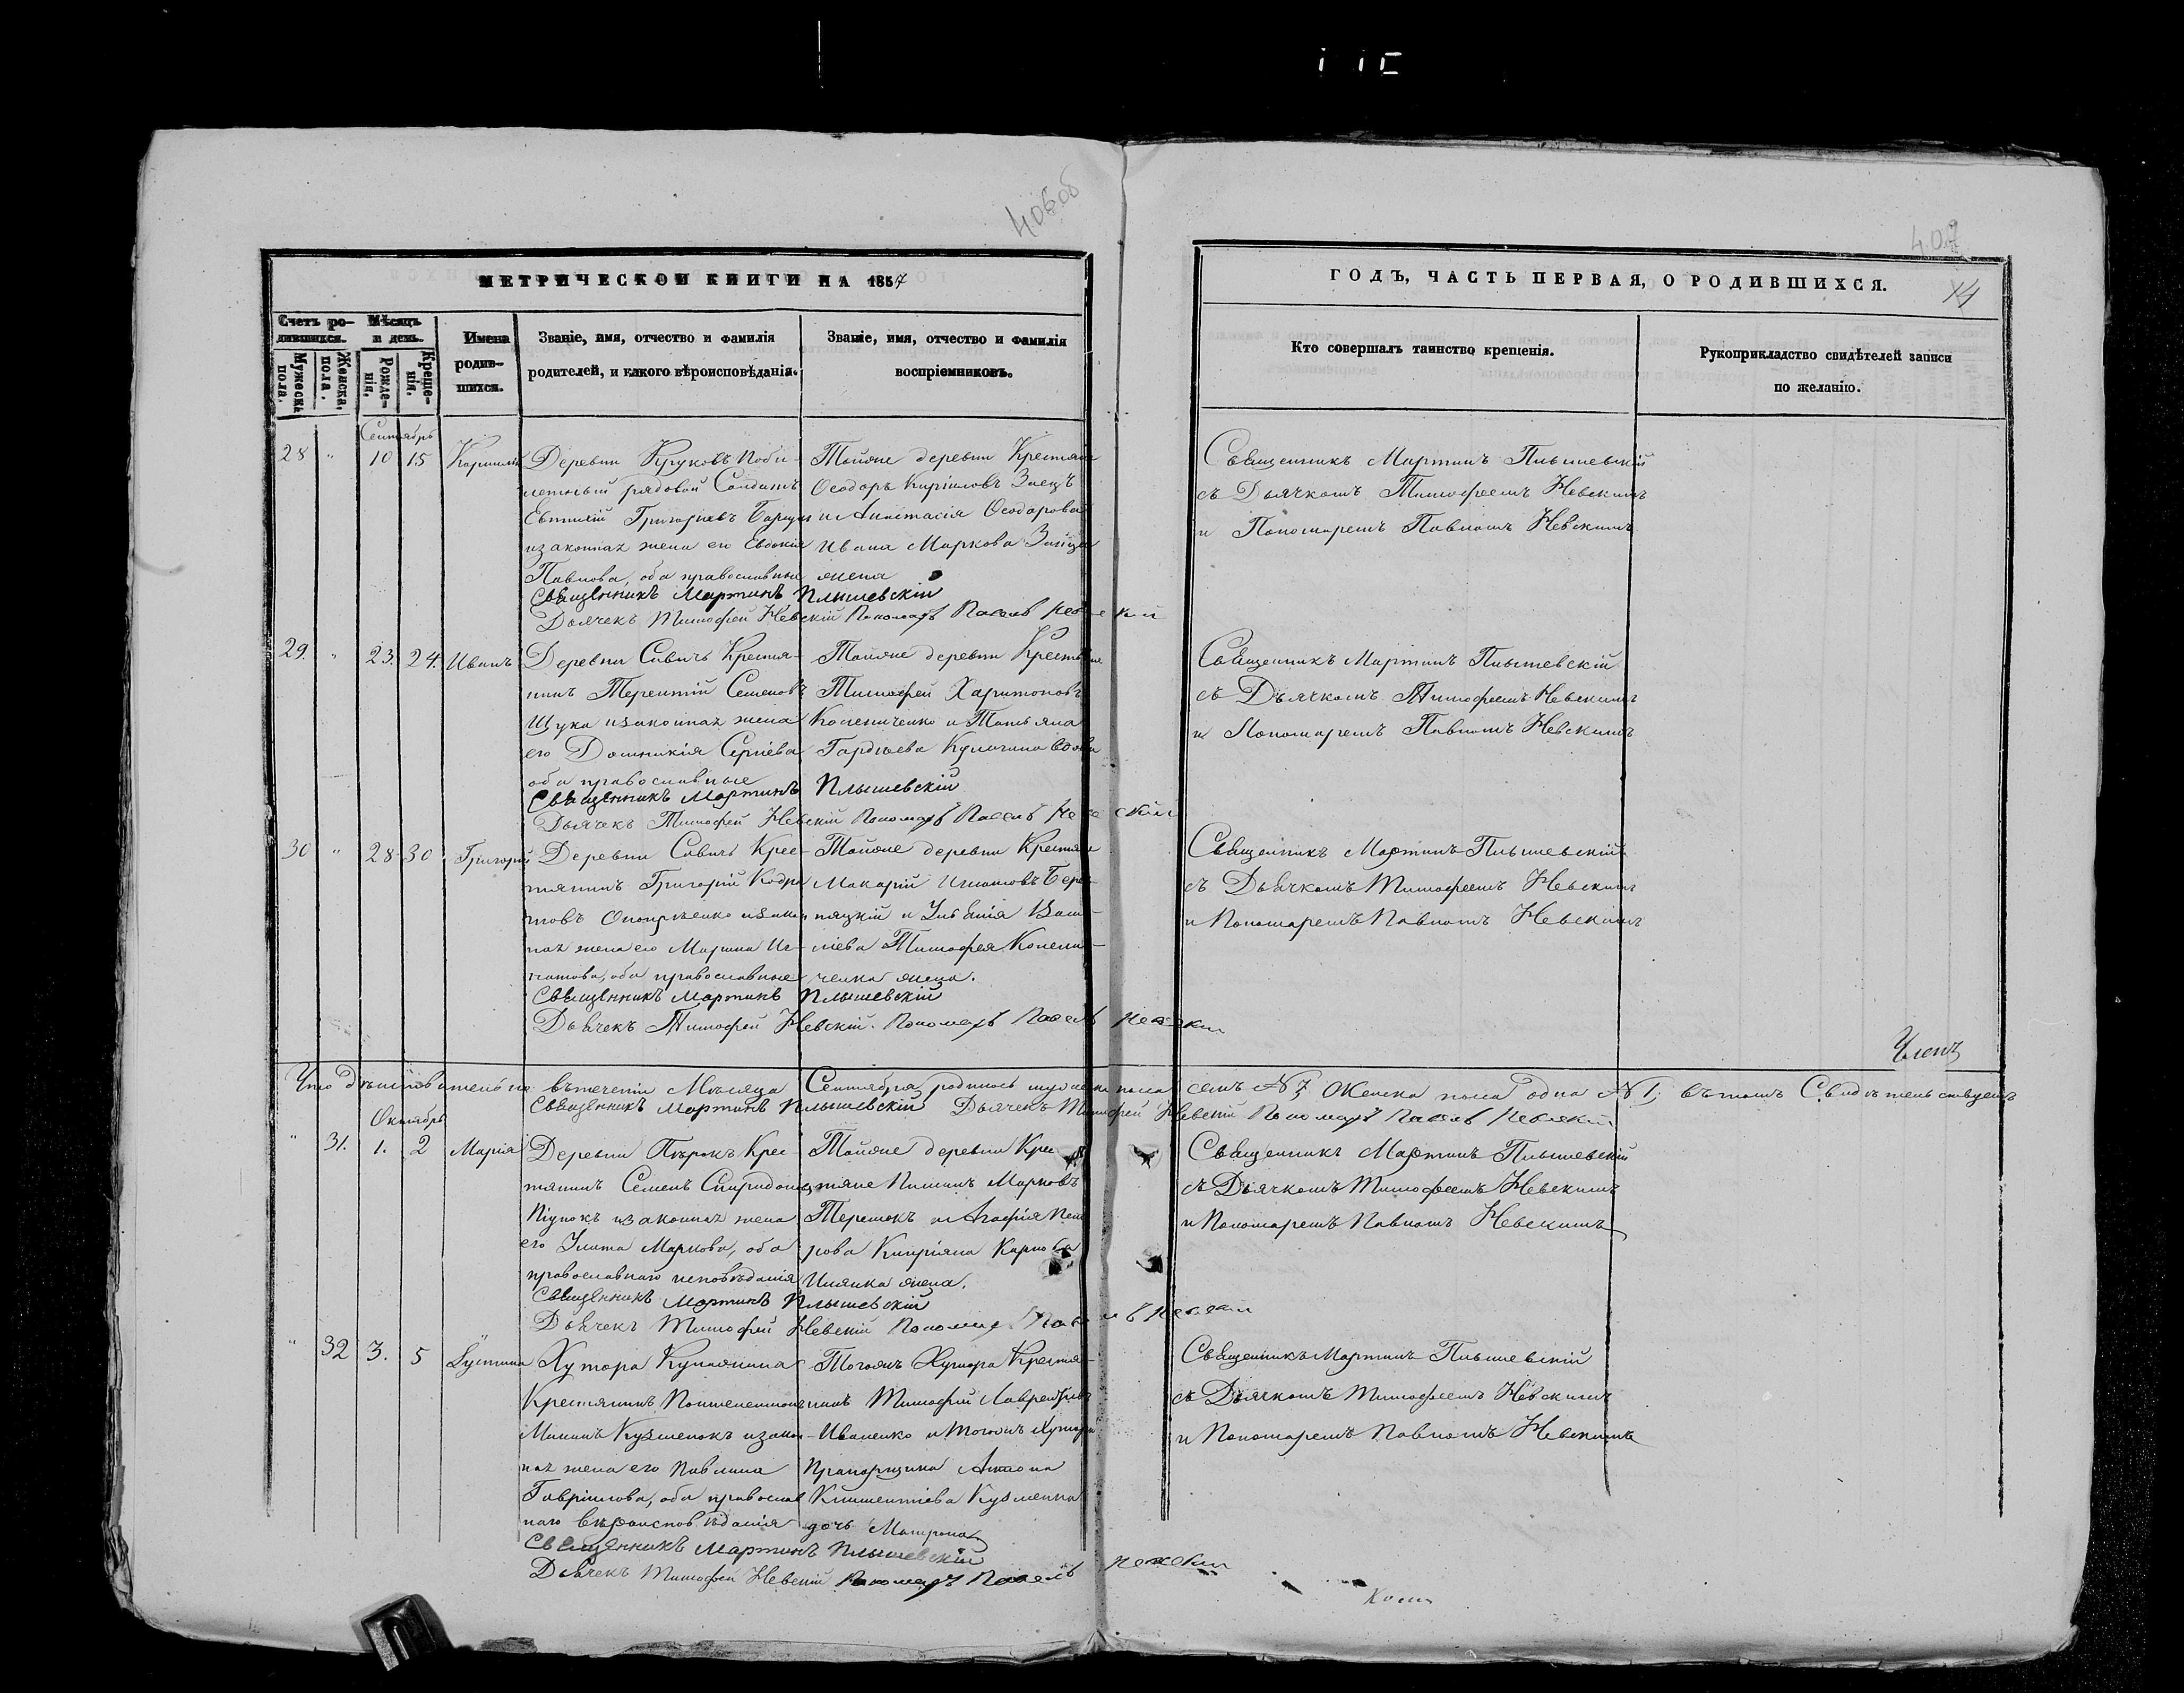 406об
407
14
МЕТРИЧЕСКОЙ КНИГИ НА 1857
ГОДЪ, ЧАСТЬ ПЕРВАЯ, О РОДИВШИХСЯ.
Счетъ ро-
дившихся.
Мужеска
пола.
Женска,
пола.
Мѣсяцъ
и день.
Рожде-
нія.
Креще-
нія.
Имена
родив-
шихся.
Званіе, имя, отчество и фамилія
родителей, и какого вѣроисповѣданія.
Званіе, имя, отчество и фамилія
воспріемниковъ.
Кто совершалъ таинство крещенія.
Рукоприкладство свидѣтелей записи
по желанію.
Сентябрь
28 " 10 15 Корнилій
Деревни Круковъ
рядовой Солдатъ
Евтихій Григорьевъ
изаконная жена его Евдокія
Павлова, оба православные
Тойже деревни Крестьяне
Ѳеодоръ Кириловъ Заецъ
и Анастасія Ѳеодорова
Ивана Маркова Зайца
жена
Священникъ Мартинъ Плышевскій
Дьячекъ Тимофей Невскій Пономарь Павелъ Невскій
Священникъ Мартинъ Плышевскій
съ Дьячкомъ Тимофеемъ Невскимъ
и Пономаремъ Павломъ Невскимъ
29. " 23. 24. Иванъ
Деревни Савичъ Крестья-
нинъ Терентій Семеновъ
Щука изаконная жена
его Домникія Сергіева
оба православные
Тойже деревни Крестьяне
Тимофей Харитоновъ
Копениченко и Татьяна
Гордѣева вдова
Священникъ Мартинъ Плышевскій
Дьячекъ Тимофей Невскій Пономарь Павелъ Невскій
Священникъ Мартинъ Плышевскій
съ Дьячкомъ Тимофеемъ Невскимъ
и Пономаремъ Павломъ Невскимъ
30 " 28 30 Григорій
Деревни Савичъ Крес-
тянинъ Григорій Кодра
товъ изакон
ная жена его Марина Иг-
натова, оба православные
Тойже деревни Крестьяне
Макарій Игнатовъ
и Улбянія Васи-
ліева Тимофея Копени-
ченка жена.
Священникъ Мартинъ Плышевскій
Дьячекъ Тимофей Невскій. Пономарь Павелъ Невскій
Священникъ Мартинъ Плышевскій
съ Дьячкомъ Тимофеемъ Невскимъ
и Пономаремъ Павломъ Невскимъ
Членъ
Что дѣйствительно въ теченіи Мѣсяца Сентября родилось мужеска пола семъ №7, Женска пола одна №1; въ томъ Свидѣтельствуемъ
Священникъ Мартинъ Плышевскій Дьячекъ Тимофей Невскій Пономарь Павелъ Невскій
Октябрь
" 31. 1. 2 Марія
Деревни Пѣрокъ Крес-
тянинъ Семенъ Спиридоновъ
изаконная жена
его Улита Маркова, оба
православнаго исповѣданія
Тойже деревни Крес
тяне Пименъ Марковъ
Терешокъ и Агафія Пет
рова Кипріяна Карпова
жена.
Священникъ Мартинъ Плышевскій
Дьячекъ Тимофей Невскій Пономарь Павелъ Невскій
Священникъ Мартинъ Плышевскій
съ Дьячкомъ Тимофеемъ Невскимъ
и Пономаремъ Павломъ Невскимъ
" 32 3. 5 Іустина
Хутора
Крестянинъ
Кузменокъ изакон-
ная жена его Павлина
Гавріилова, оба православ
наго вѣроисповѣданія
Тогожъ Хутора Крестья-
нинъ Тимофей Лаврентіевъ
Иваненко и тогожъ Хутора
Прапорщика Антона
Климентіева Кузменка
дочь Матрона
Священникъ Мартинъ Плышевскій
Дьячекъ Тимофей Невскій Пономарь Павелъ Невскій
Священникъ Мартинъ Плышевскій
съ Дьячкомъ Тимофеемъ Невскимъ
и Пономаремъ Павломъ Невскимъ